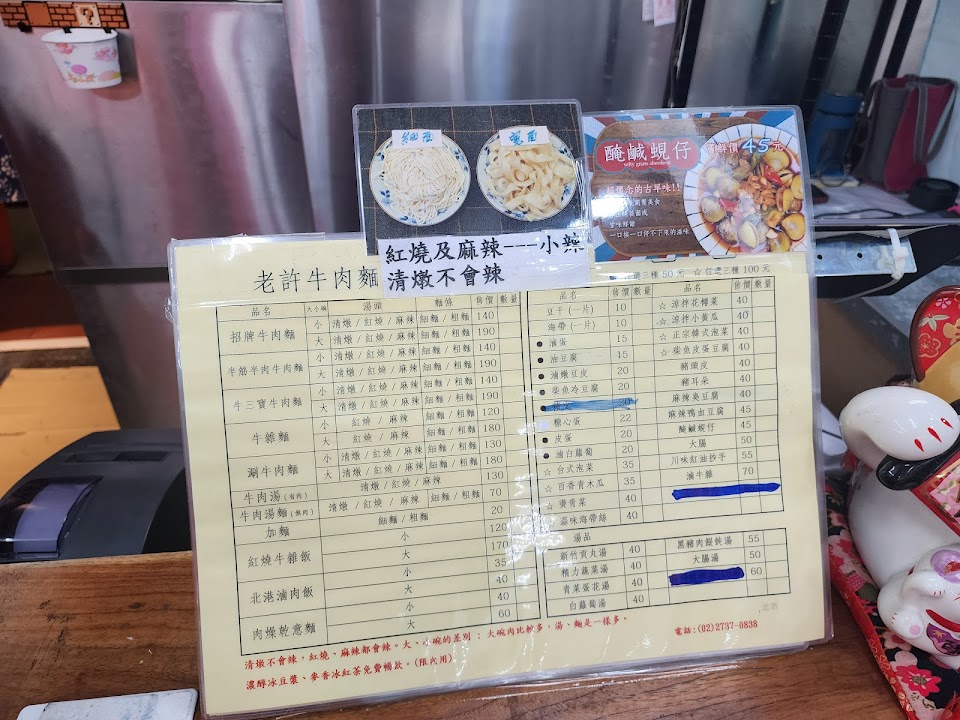 細面
寬面
紅燒及麻辣---小辣
清燉不會辣
醃鹹蜆仔 45元
一口接一口停不下來的滷味
老許牛肉麵
任選三種 50 元 ☆任選三種 100 元
品名 大小碗 湯頭 麵條 售價 數量
招牌牛肉麵 小 清燉/紅燒/麻辣 細麵/粗麵 140
大 清燉/紅燒/麻辣 細麵/粗麵 190
半筋半肉牛肉麵 小 清燉/紅燒/麻辣 細麵/粗麵 140
大 清燉/紅燒/麻辣 細麵/粗麵 190
牛三寶牛肉麵 小 清燉/紅燒/麻辣 細麵/粗麵 140
大 清燉/紅燒/麻辣 細麵/粗麵 190
牛雜麵 小 紅燒/麻辣 細麵/粗麵 120
大 紅燒/麻辣 細麵/粗麵 180
涮牛肉麵 小 清燉/紅燒/麻辣 細麵/粗麵 130
大 清燉/紅燒/麻辣 細麵/粗麵 180
牛肉湯(有肉) 清燉/紅燒/麻辣 130
牛肉湯麵(無肉) 清燉/紅燒/麻辣 細麵/粗麵 70
加麵 細麵/粗麵 20
紅燒牛雜飯 小 120
大 170
北港滷肉飯 小 35
大 40
肉燥乾意麵 小 40
大 60
品名 售價 數量 品名 售價 數量
豆干(一片) 10 ☆ 涼拌花椰菜 40
海帶(一片) 10 ☆ 涼拌小黃瓜 40
● 滷蛋 15 ☆ 正宗韓式泡菜 40
● 油豆腐 15 ☆ 柴魚皮蛋豆腐 40
● 滷燉豆皮 20 豬頭皮 40
● 柴魚冷豆腐 20 豬耳朵 40
20 麻辣臭豆腐 40
糖心蛋 22 麻辣鴨血豆腐 45
● 皮蛋 20 醃鹹蜆仔 45
● 滷白蘿蔔 20 大腸 50
☆ 台式泡菜 35 川味紅油抄手 55
☆ 百香青木瓜 35 滷牛雜 70
☆ 黃青菜 40
蒜味海帶絲 40
湯品
新竹貢丸湯 40 黑豬肉餛飩湯 55
精力蔬菜湯 40 大腸湯 50
青菜蛋花湯 40 60
白蘿蔔湯 40
清燉不會辣,紅燒、麻辣都會辣。大、小碗的差別;大碗肉比較多,湯、麵是一樣多。
濃醇冰豆漿、麥香冰紅茶免費暢飲。(限內用)
電話:(02)2737-0838